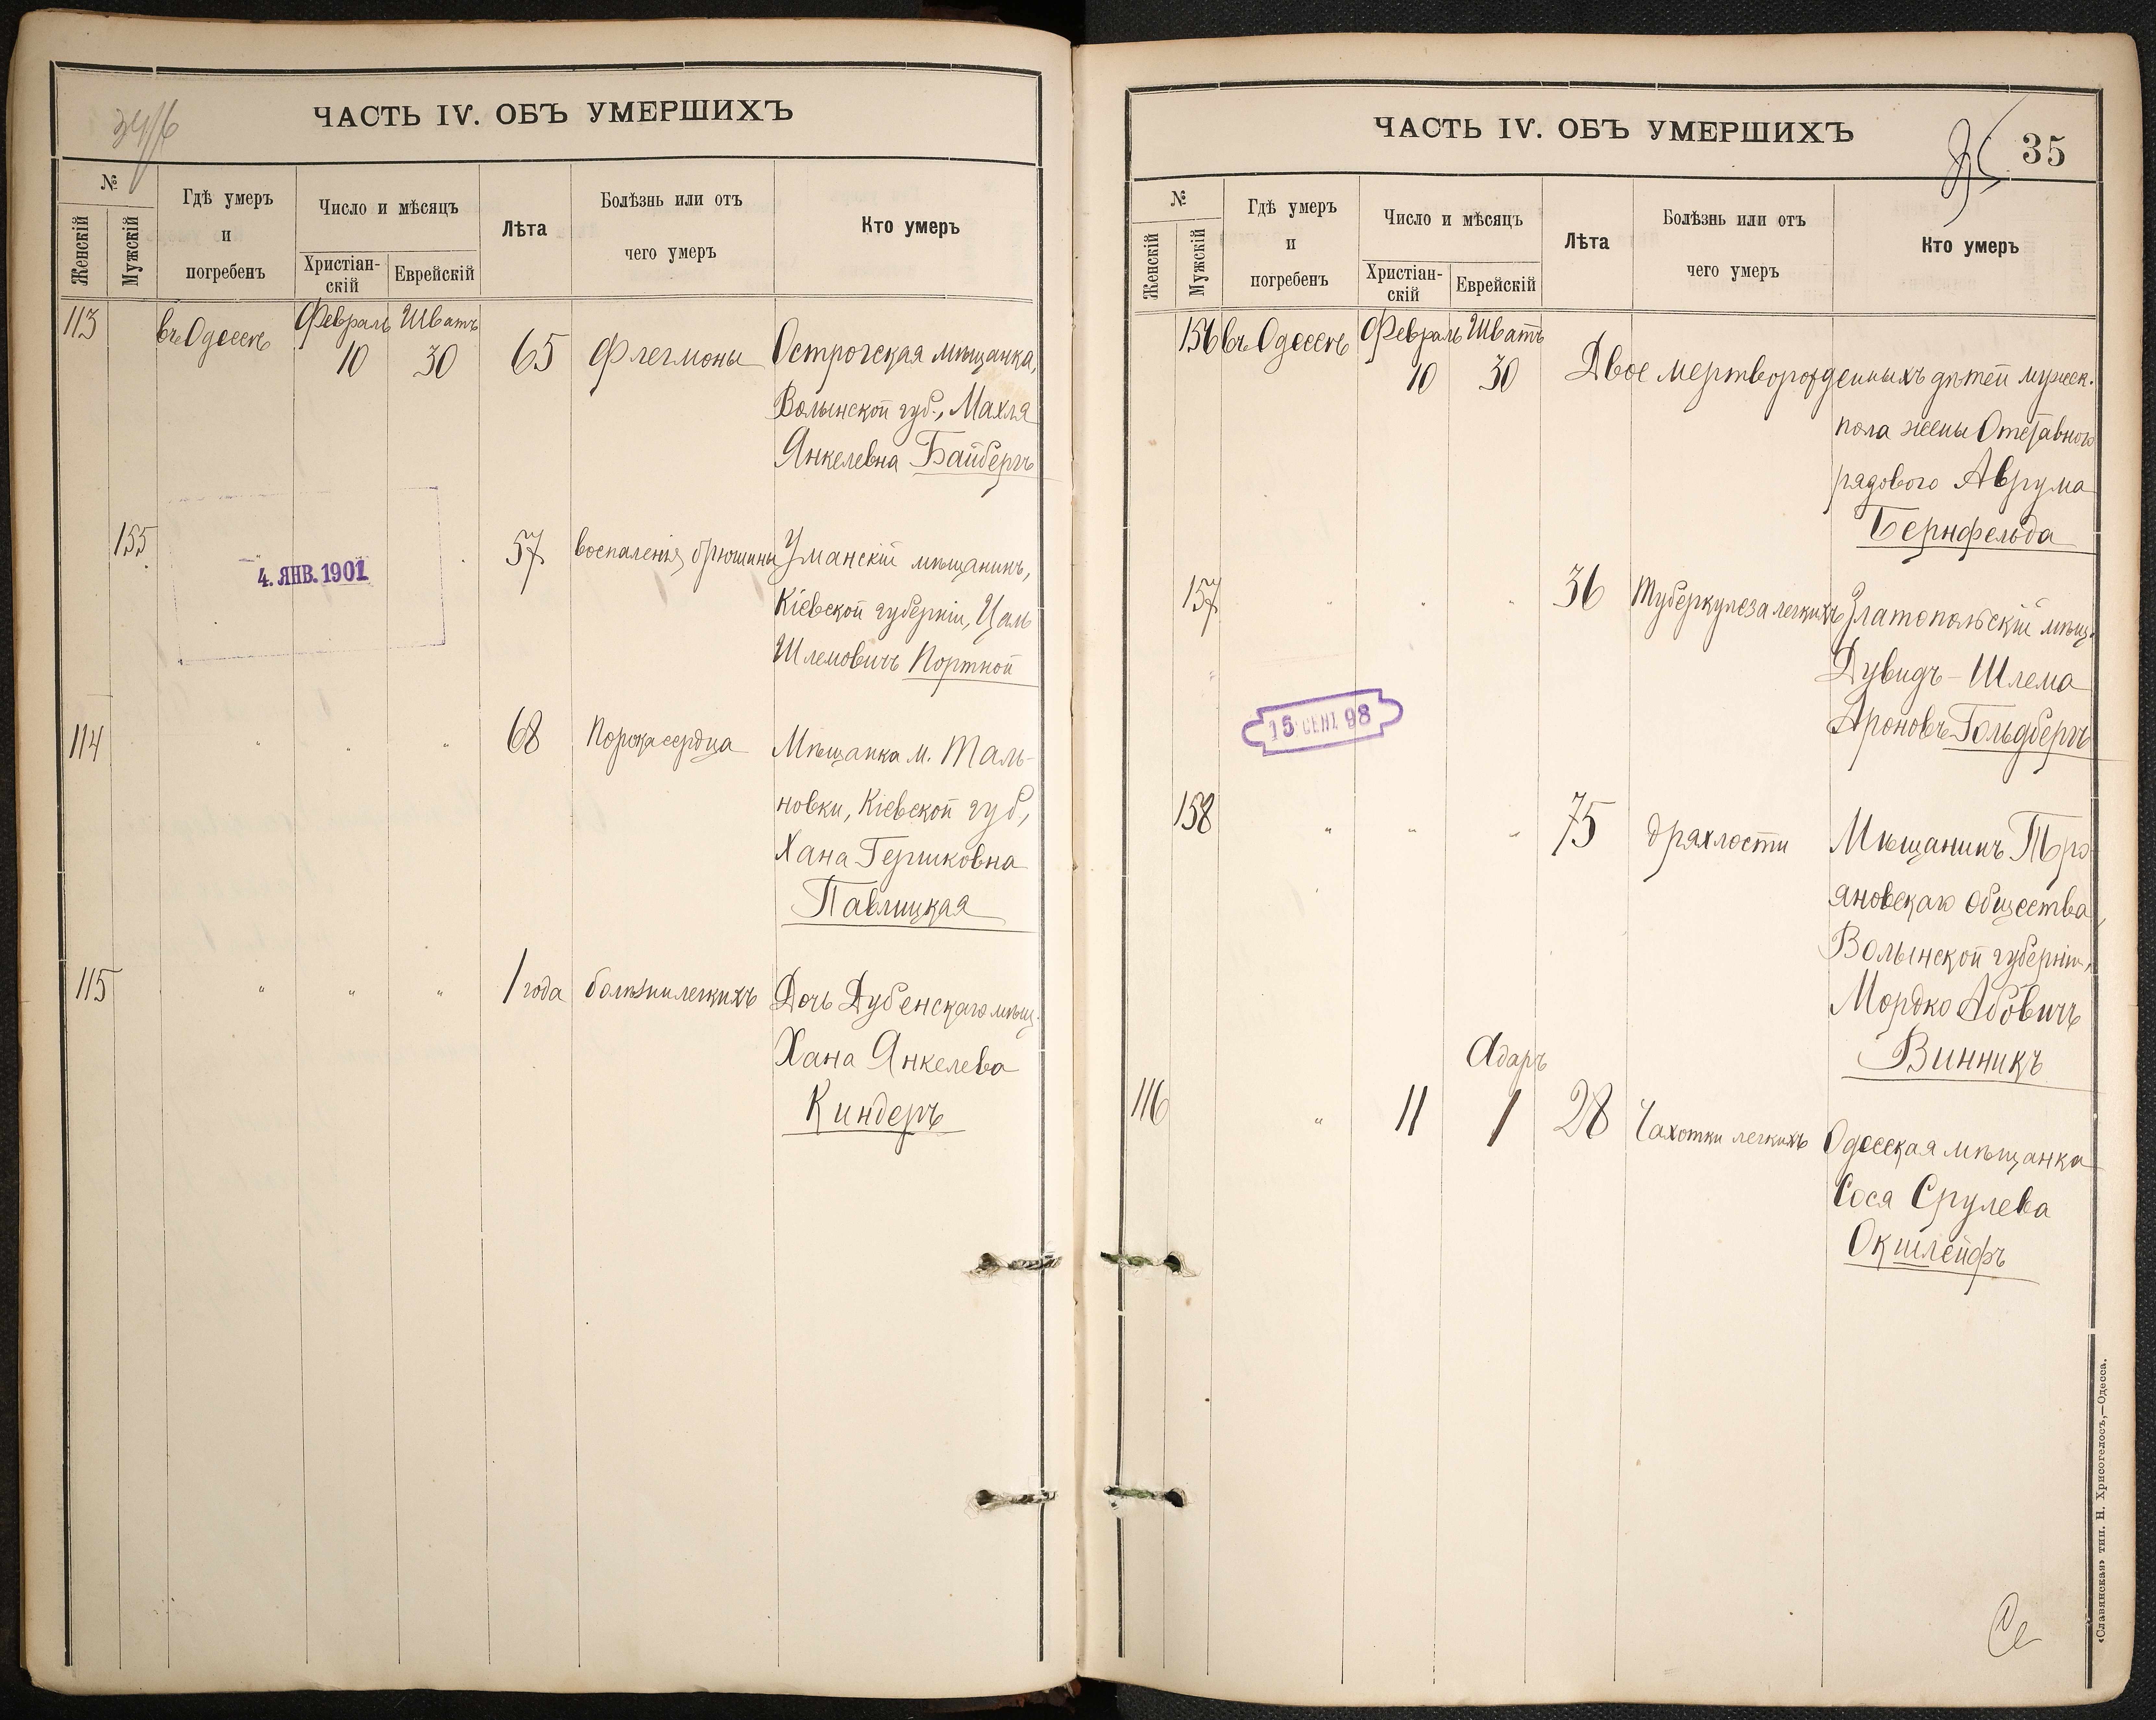 34/б
ЧАСТЬ IV. ОБЪ УМЕРШИХЪ
№
Женскій
Мужскій
Гдѣ умеръ
и
погребенъ
Число и мѣсяцъ
Христіан-
скій
Еврейскій
Лѣта
Болѣзнь или отъ
чего умеръ
Кто умеръ
113 въ Одессѣ Февраль 10 Шватъ 30 65 Флегмоны Острогская мѣщанка,
Волынской губ., Махля
Янкелевна Байбергъ
155 " 57 воспаленія брюшины Уманскій мѣщанинъ,
4. ЯНВ. 1901
Кіевской губерніи, Цаль
Шлемовичъ Портной
114 " " " 68 Порока сердца Мѣщанка м. Таль-
новки, Кіевской губ.,
Хана Гершковна
Павлицкая
115 " " " 1 года болѣзни легкихъ Дочь Дубенскаго мѣщ.
Хана Янкелева
Киндеръ
ЧАСТЬ IV. ОБЪ УМЕРШИХЪ
35
35
№
Женскій
Мужскій
Гдѣ умеръ
и
погребенъ
Число и мѣсяцъ
Христіан-
скій
Еврейскій
Лѣта
Болѣзнь или отъ
чего умеръ
Кто умеръ
156 въ Одессѣ Февраль 10 Шватъ 30 Двое мертворожденныхъ дѣтей мужск.
пола жены Отставного
рядового Аврума
Бернфельда
157 " " " 36 Туберкулеза легкихъ Златопольскій мѣщ.
Дувидъ-Шлема
15 СЕНТ. 98
Ароновъ Гольдбергъ
158 " " " 75 дряхлости Мѣщанинъ Тро-
яновскаго общества,
Волынской губерніи,
Мордко Абовичъ
Винникъ
Адаръ
116 " 11 1 28 Чахотки легкихъ Одесская мѣщанка
Сося Срулева
Окшлейфъ
«Славянская» тип. Н. Хрисогелосъ,—Одесса.